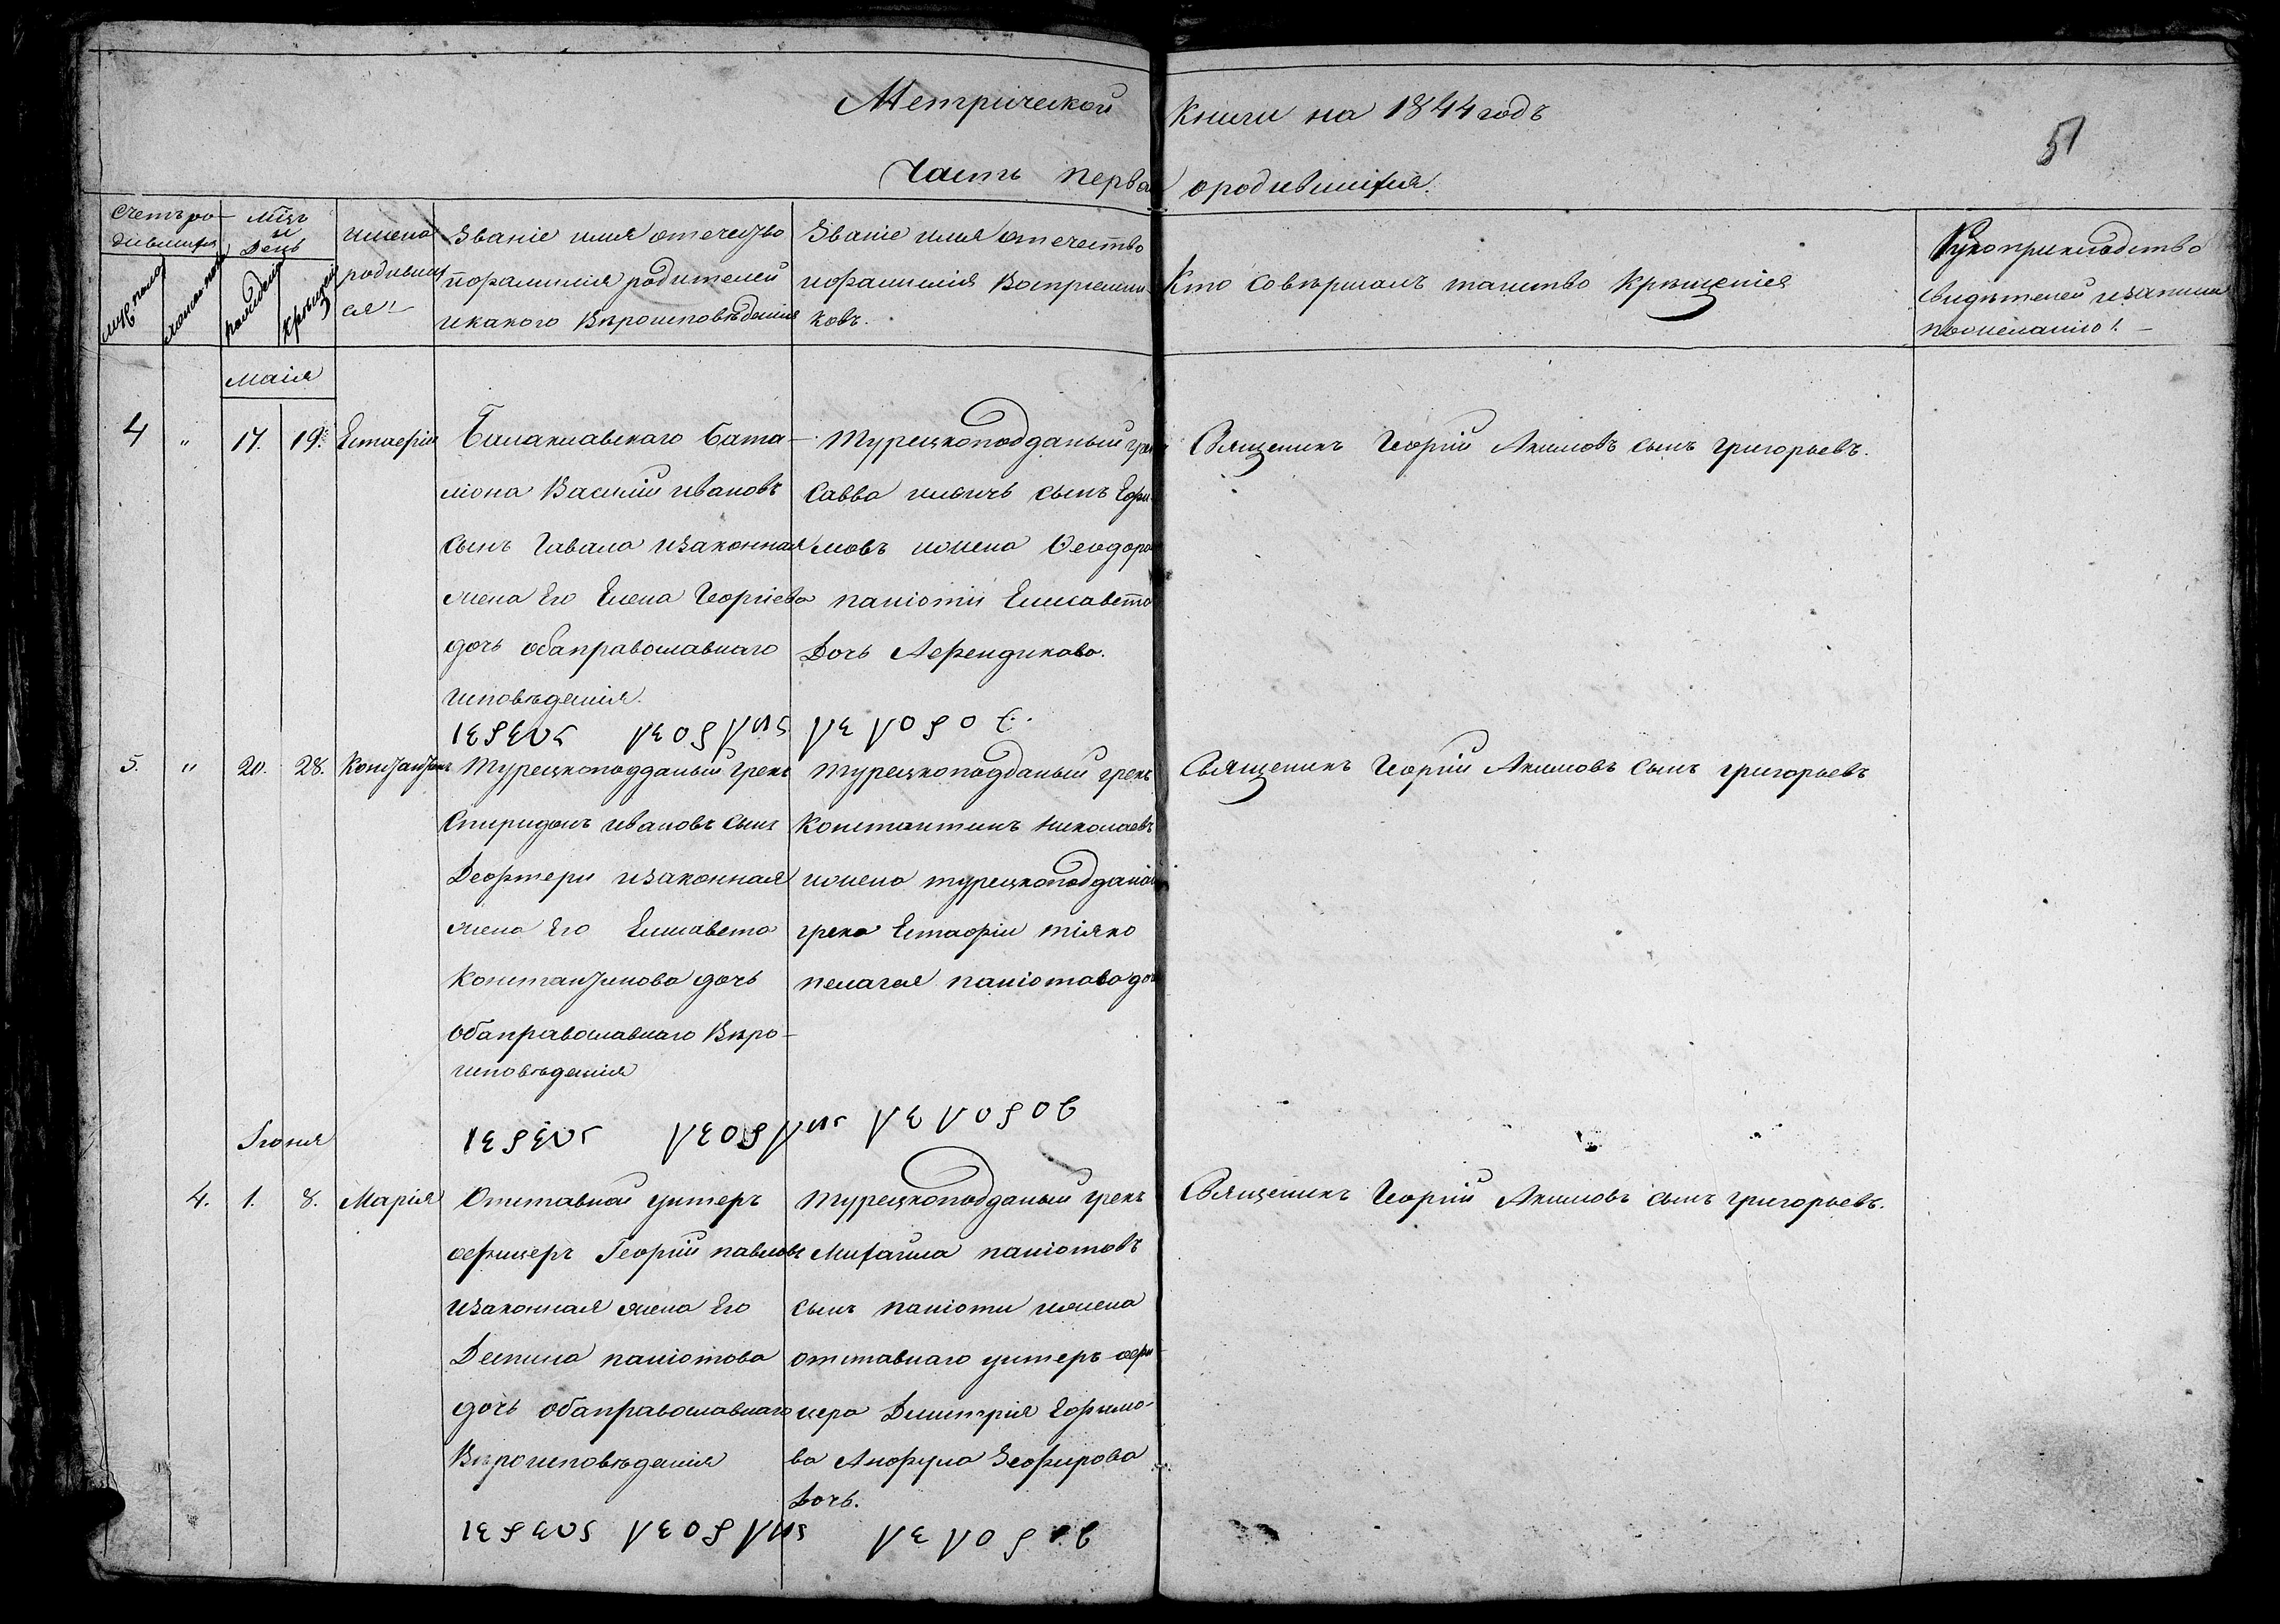 Метрической Книги на 1844 годъ
51
Часть первая ородившихся.
Счетъ ро-
дившихся
муж. пола
женск. пола
Мѣцъ
и
День
рожденія
крещенія
имена
родивших
ся
Званіе имя отечество
ифамилія родителей
икакого Вѣроисповѣданія
Званіе имя отечество
ифамилія Воспріемни-
ковъ.
Кто Совѣршалъ таинство Крѣщенія
Рукоприкладство
свидѣтелей изаписи
пожеланію!.
маія
4 " 17. 19. Естаѳріи
Балаклавскаго бата-
ліона Василій ивановъ
сынъ Гавала изаконная
жена Его Елена Георгіева
дочь обаправославнаго
исповѣданія.
Турецкоподданый грекъ
Савва ильичъ сынъ Ефи-
мовъ ижена Ѳеодора
паніоти Елисавета
Дочь Аѳендикова.
Священикъ Георгій Акимовъ сынъ григорьевъ.
ιερευς γεοργιος γεγορος.
5. " 20. 28. Константинъ
Турецкоподданый грекъ
Спиридонъ ивановъ сынъ
Деофтери изаконная
жена Его Елисавета
Константинова дочь
обаправославнаго Вѣро-
исповѣданія
турецкоподданый грекъ
Константинъ николаевъ
ижена турецкоподданаго
грека Естаѳріи тіяко
пелагея паніотова дочь
Священикъ Георгій Акимовъ сынъ григорьевъ
ιερευς γεοργιος γεγορος
Іюния
4. 1. 8. Марія
Отставной унтеръ
офицеръ Георгій павловъ
изаконная жена Его
Деспина паніотова
дочь обаправославнаго
Вѣроисповѣданія
турецкоподданый грекъ
Михаила паніотовъ
сынъ паніоти ижена
отставнаго унтеръ офи-
цера Димитрія Ефимо-
ва Анфула Зефирова
Дочь.
Священикъ Георгій Акимовъ сынъ григорьевъ.
ιερευς γεοργιος γεγορος